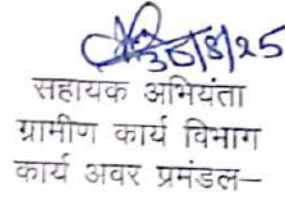 30/8/25
सहायक अभियंता
ग्रामीण कार्य विभाग
कार्य अवर प्रमंडल—